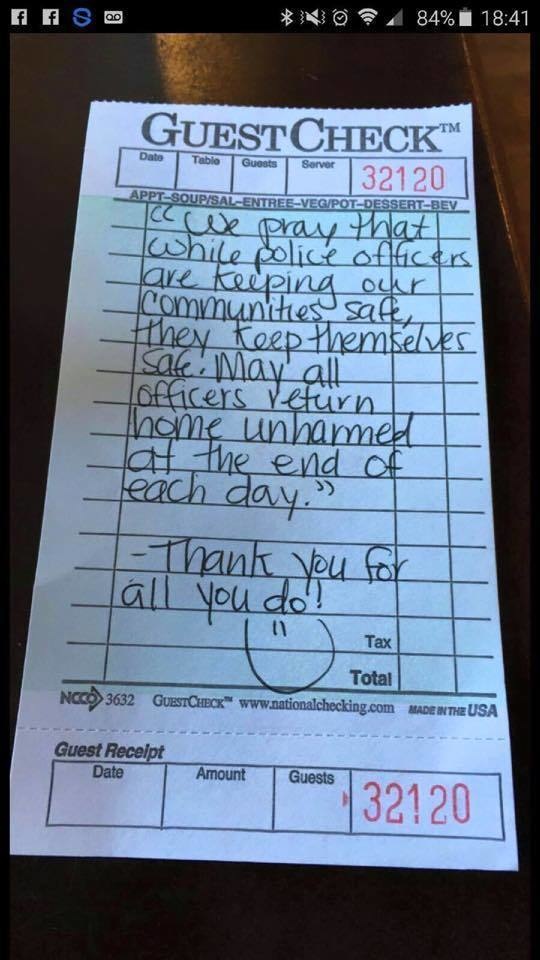 84% 18:41
GUESTCHECK™
Date Table Guests Server 32120
APPT-SOUP/SAL-ENTREE-VEG/POT-DESSERT-BEV
"We pray that
while police officers
are keeping our
communities safe,
they keep themselves
safe. May all
officers return
home unharmed
at the end of
each day."
-Thank you for
all you do!!
Tax
Total
NCCO 3632 GUESTCHECK™ www.nationalchecking.com MADE IN THE USA
Guest Receipt
Date Amount Guests 32120